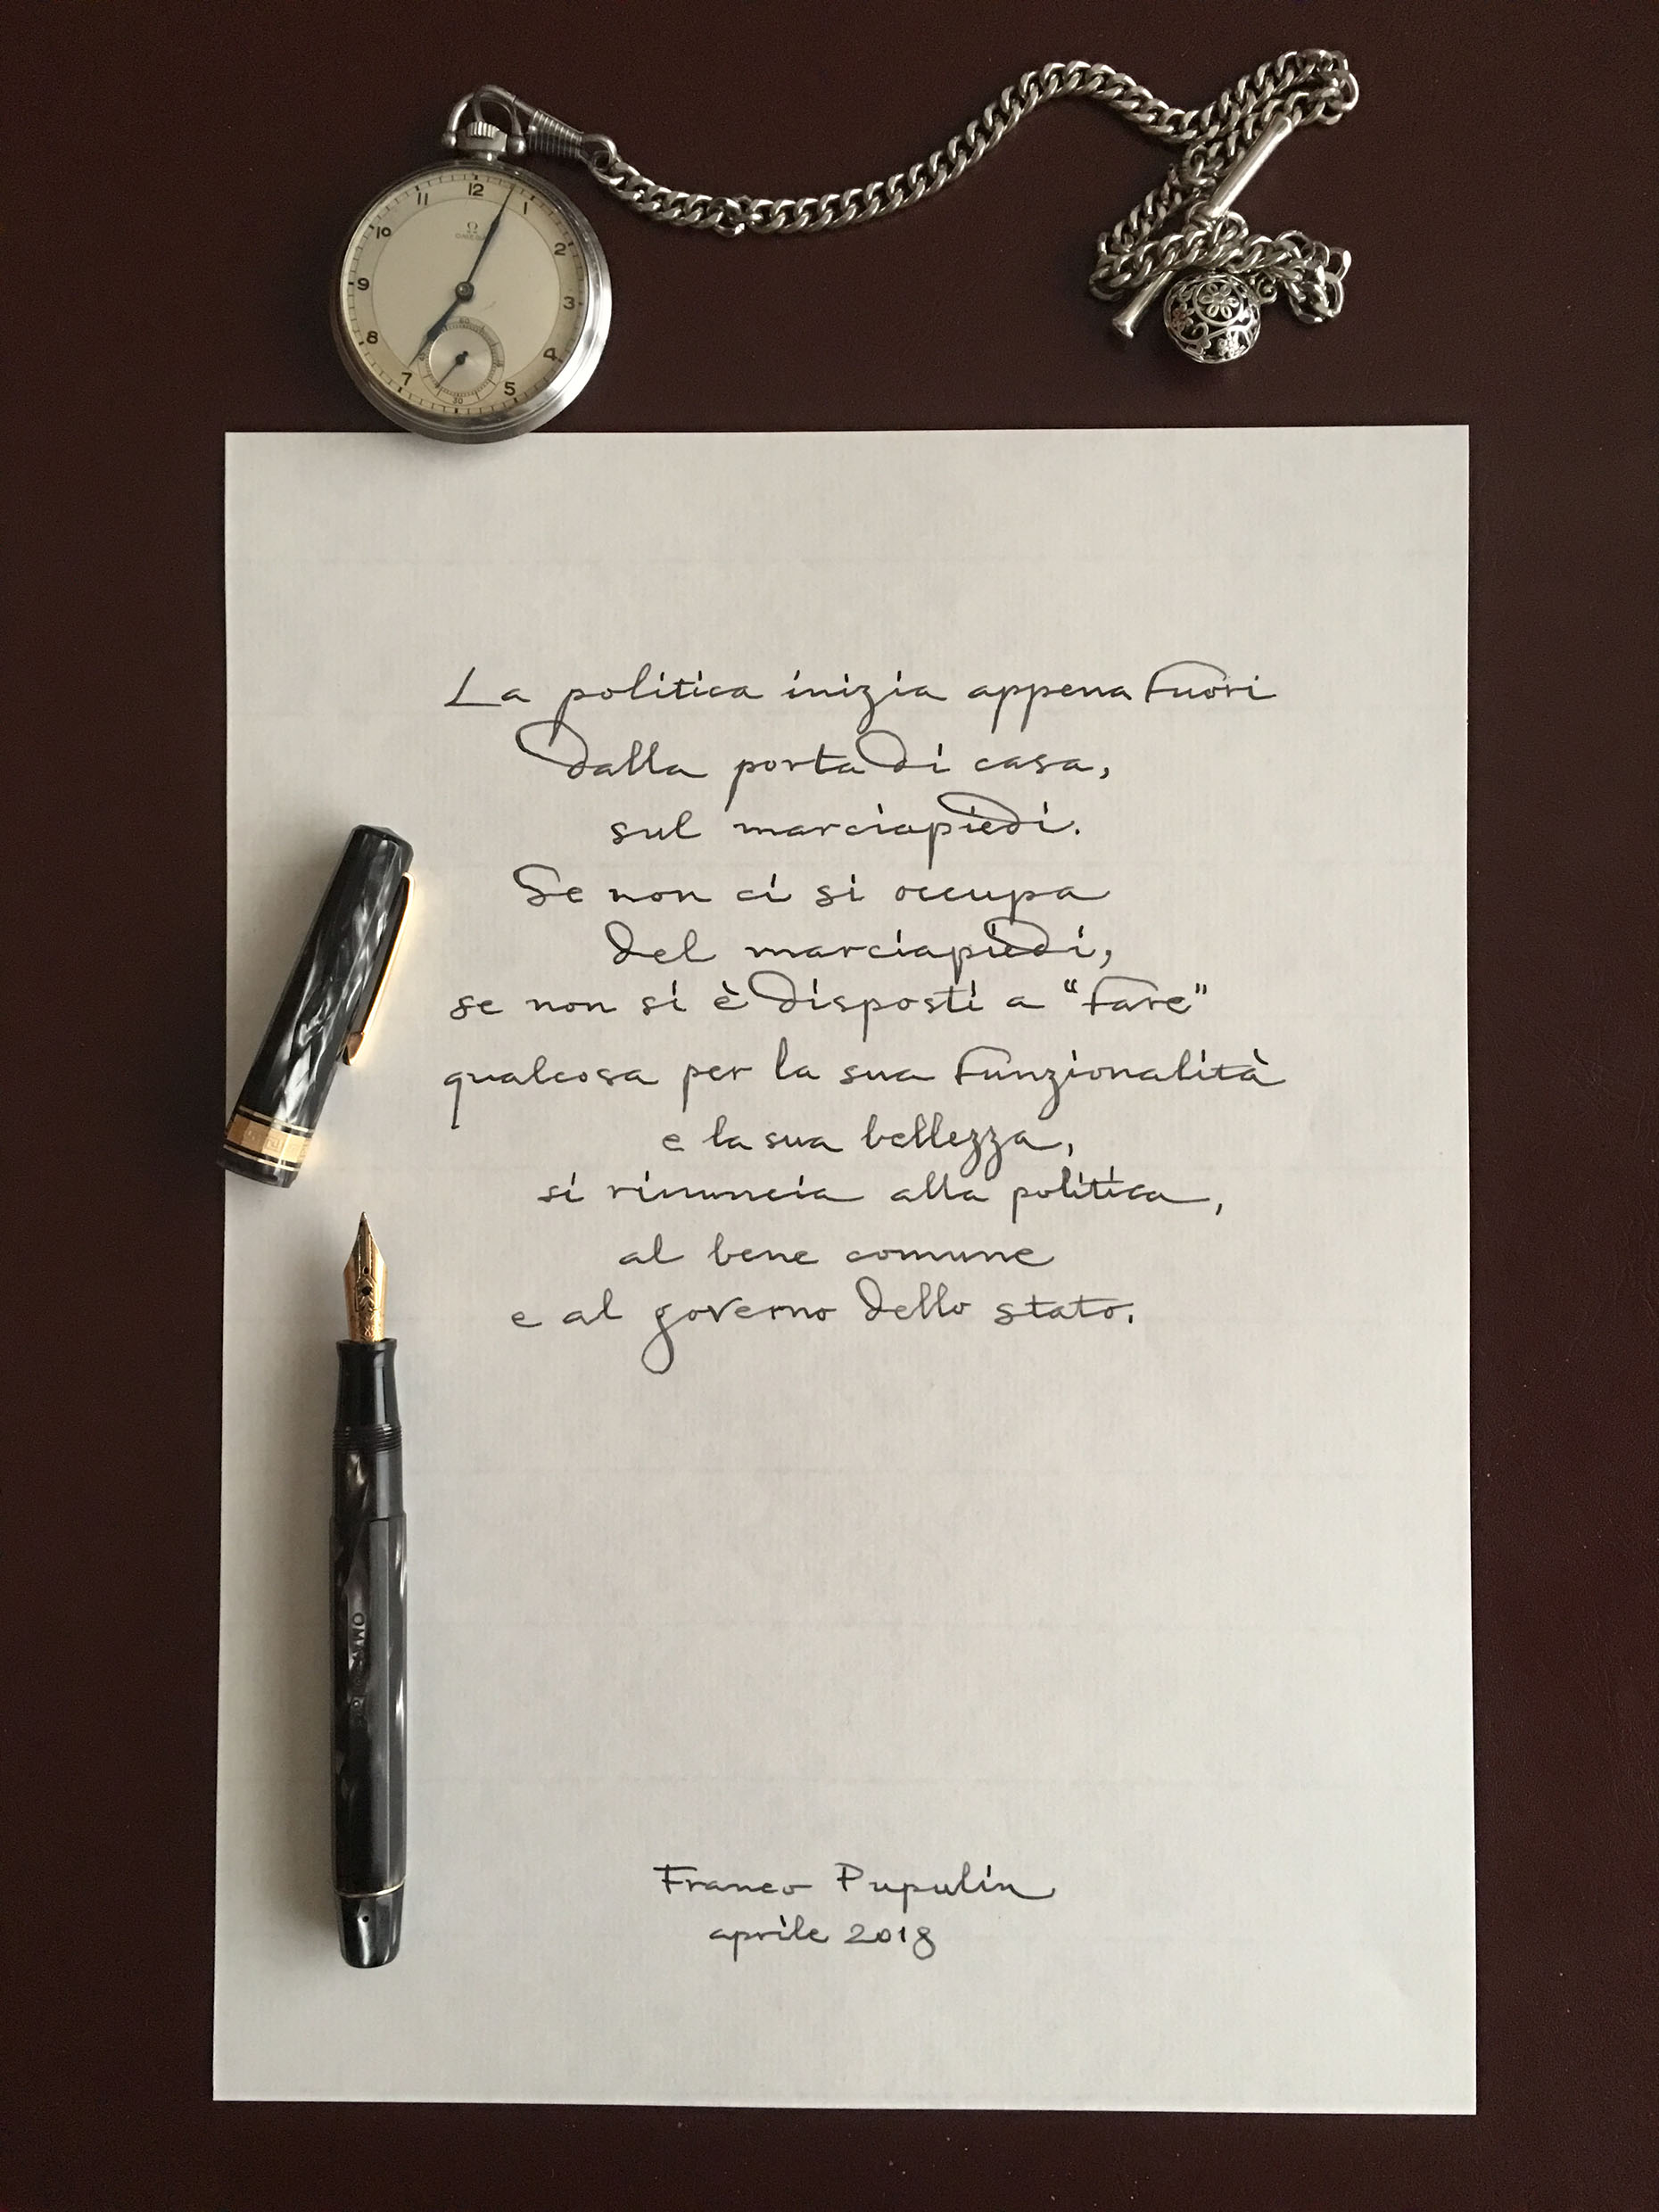 12
1
2
3
4
5
7
8
9
10
11
Ω
OMEGA
60
30
La politica inizia appena fuori
dalla porta di casa,
sul marciapiedi.
Se non ci si occupa
del marciapiedi,
se non si è disposti a “fare”
qualcosa per la sua funzionalità
e la sua bellezza,
si rinuncia alla politica,
al bene comune
e al governo dello stato.
Franco Pupulin
aprile 2018